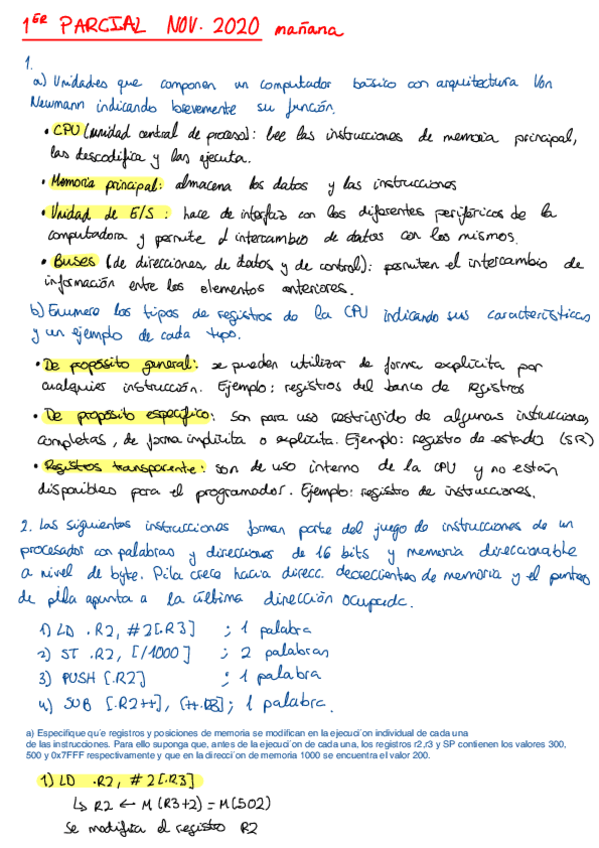 1ER PARCIAL NOV. 2020 mañana
1.
a) Unidades que componen un computador básico con arquitectura Von
Newmann indicando brevemente su función.
• CPU (unidad central de proceso): lee las instrucciones de memoria principal,
las descodifica y las ejecuta.
• Memoria principal: almacena los datos y las instrucciones
• Unidad de E/S : hace de interfaz con los diferentes periféricos de la
computadora y permite el intercambio de datos con los mismos.
• Buses (de direcciones, de datos y de control): permiten el intercambio de
información entre los elementos anteriores.
b) Enumere los tipos de registros de la CPU indicando sus características
y un ejemplo de cada tipo.
• De propósito general: se pueden utilizar de forma explícita por
cualquier instrucción. Ejemplo: registros del banco de registros
• De propósito específico: son para uso restringido de algunas instrucciones
completas, de forma implícita o explícita. Ejemplo: registro de estado (SR)
• Registros transparente: son de uso interno de la CPU y no están
disponibles para el programador. Ejemplo: registro de instrucciones.
2. Las siguientes instrucciones forman parte del juego de instrucciones de un
procesador con palabras y direcciones de 16 bits y memoria direccionable
a nivel de byte. Pila crece hacia direcc. decrecientes de memoria y el puntero
de pila apunta a la última dirección ocupada.
1) LD .R2, #2[.R3] ; 1 palabra
2) ST .R2, [/1000] ; 2 palabras
3) PUSH [.R2] ; 1 palabra
4) SUB [.R2++], [++.R3]; 1 palabra.
a) Especifique qu´e registros y posiciones de memoria se modifican en la ejecuci´on individual de cada una
de las instrucciones. Para ello suponga que, antes de la ejecuci´on de cada una, los registros r2,r3 y SP contienen los valores 300,
500 y 0x7FFF respectivamente y que en la direcci´on de memoria 1000 se encuentra el valor 200.
1) LD .R2, #2[.R3]
↳ R2 ← M(R3+2) = M(502)
Se modifica el registro R2